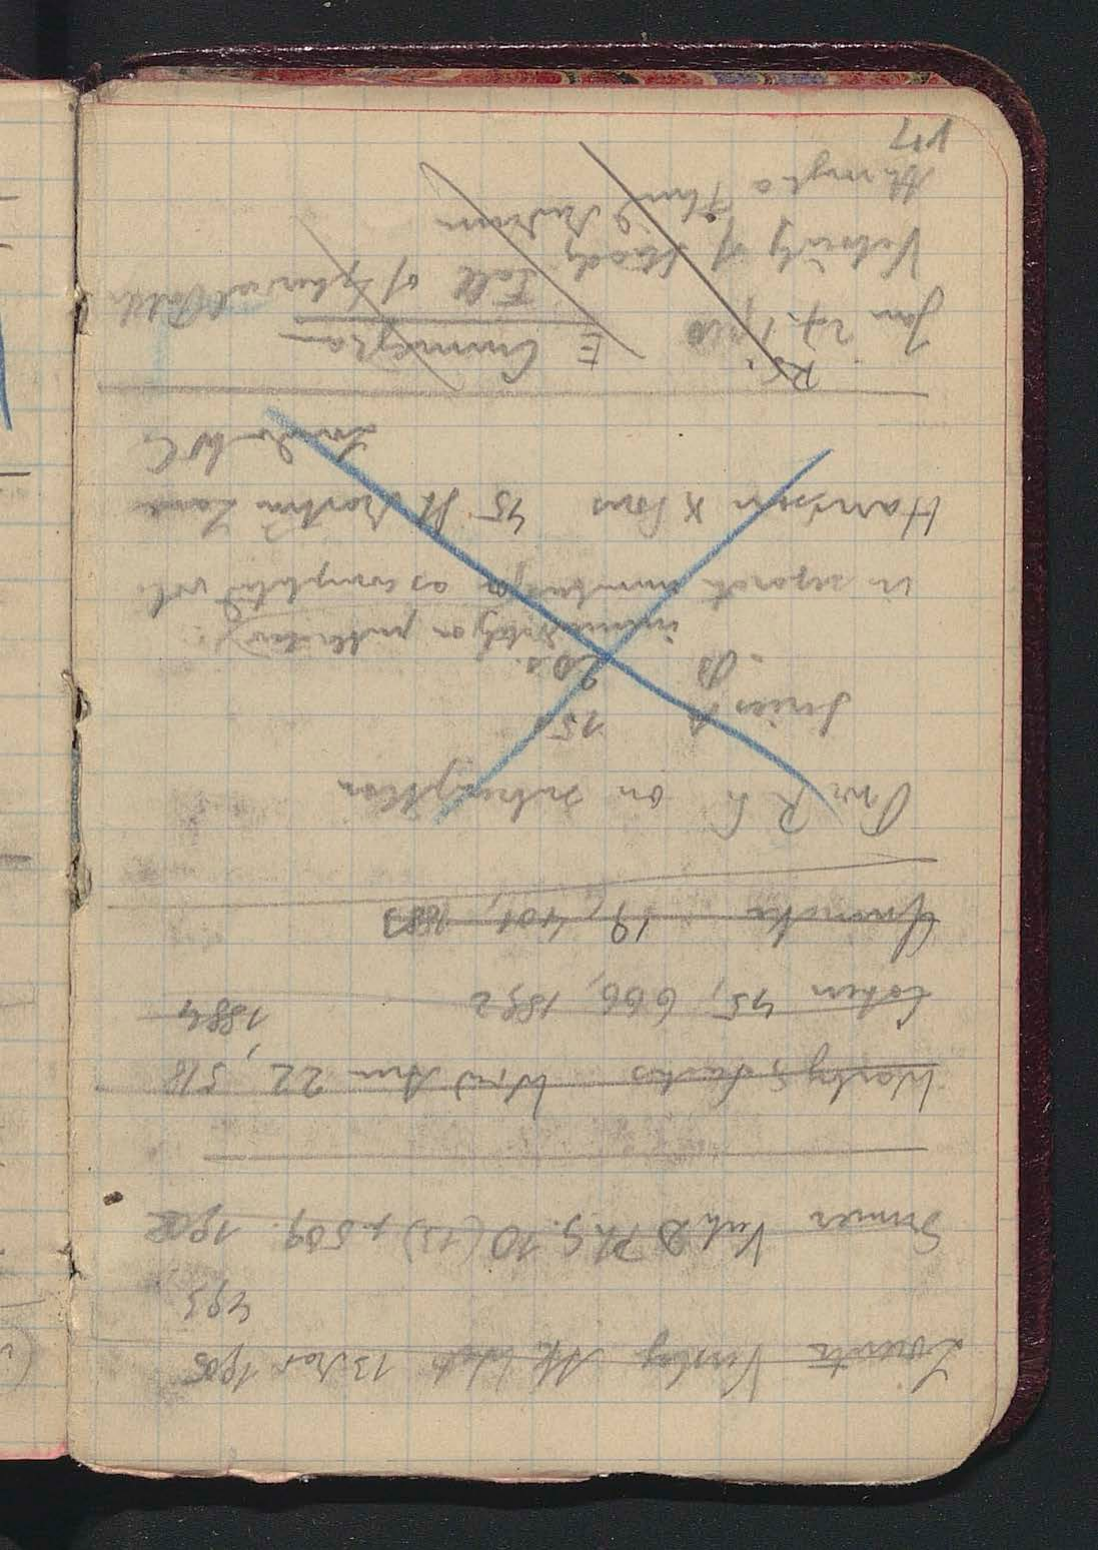 Lorentz Verslag Ak Wet 13 Nov 1905
493
Sumner Verh D Ph G. 10 (13), p. 509. 1908
Warburg & Sachs Wied Ann 22, 518
1884
Cohen 45, 666, 1892
Quincke 19, 401, 1883
Proc R S on subscription
Series A 15s
" B 20s.
immediately on publication
in separate numbers or as completed vols
Harrison & Sons 45 St Martin Lane
London W C
RS.
E Cunningham
Jan 27. 1910
Velocity of steady fall of spherical
through a fluid medium